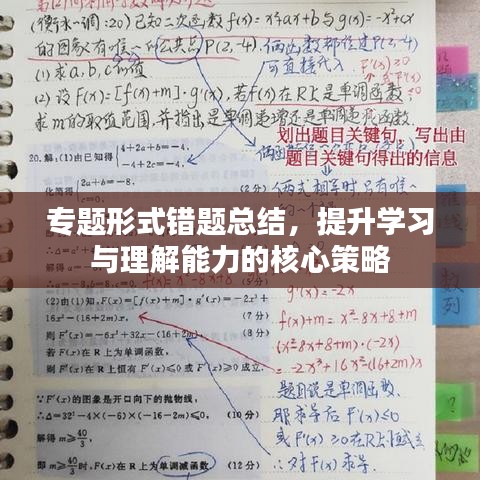 (衡水一调:20)已知二次函数f(x)=x²+ax+b与g(x)=-x²+cx
的图象有唯一的公共点P(2,-4)
俩函数都经过P(2,-4)
可直接代入
(1)求a,b,c的值
(2)设F(x)=[f(x)+m]·g'(x),若F(x)在R上是单调函数
求m的取值范围,并指出是单调递增还是单调递减函数.
划出题目关键句，写出由
题目关键句得出的信息
20.解:(1)由已知得{4+2a+b=-4,
-4+2c=-4.
化简得{2a+b=-8,
专题形式错题总结，提升学习
与理解能力的核心策略
(2)由(1)知,F(x)=[f(x)+m]·g'(x)=-2x³+
16x²-(16+2m)x, (7分)
则F'(x)=-6x²+32x-(16+2m). (8分)
若F(x)在R上为单调函数,
则F'(x)在R上恒有F'(x)≤0或F'(x)≥0成立.
∵F'(x)的图象是开口向下的抛物线,
∴Δ=32²-4×(-6)×(-16-2m)≤0, (10分)
解得m≥40/3,
即m≥40/3时,F(x)在R上为单调减函数 (12分)
g'(x)=-2x
f(x)+m=x²-8x+8+m
(x²-8x+8+m)·(-2x)
=-2x³+16x²-(16+2m)x
题目说是单调函数.
那求导后F'(x)≤0
或F'(x)≥0在R上恒成立
∴对F(x)求导.
数
列